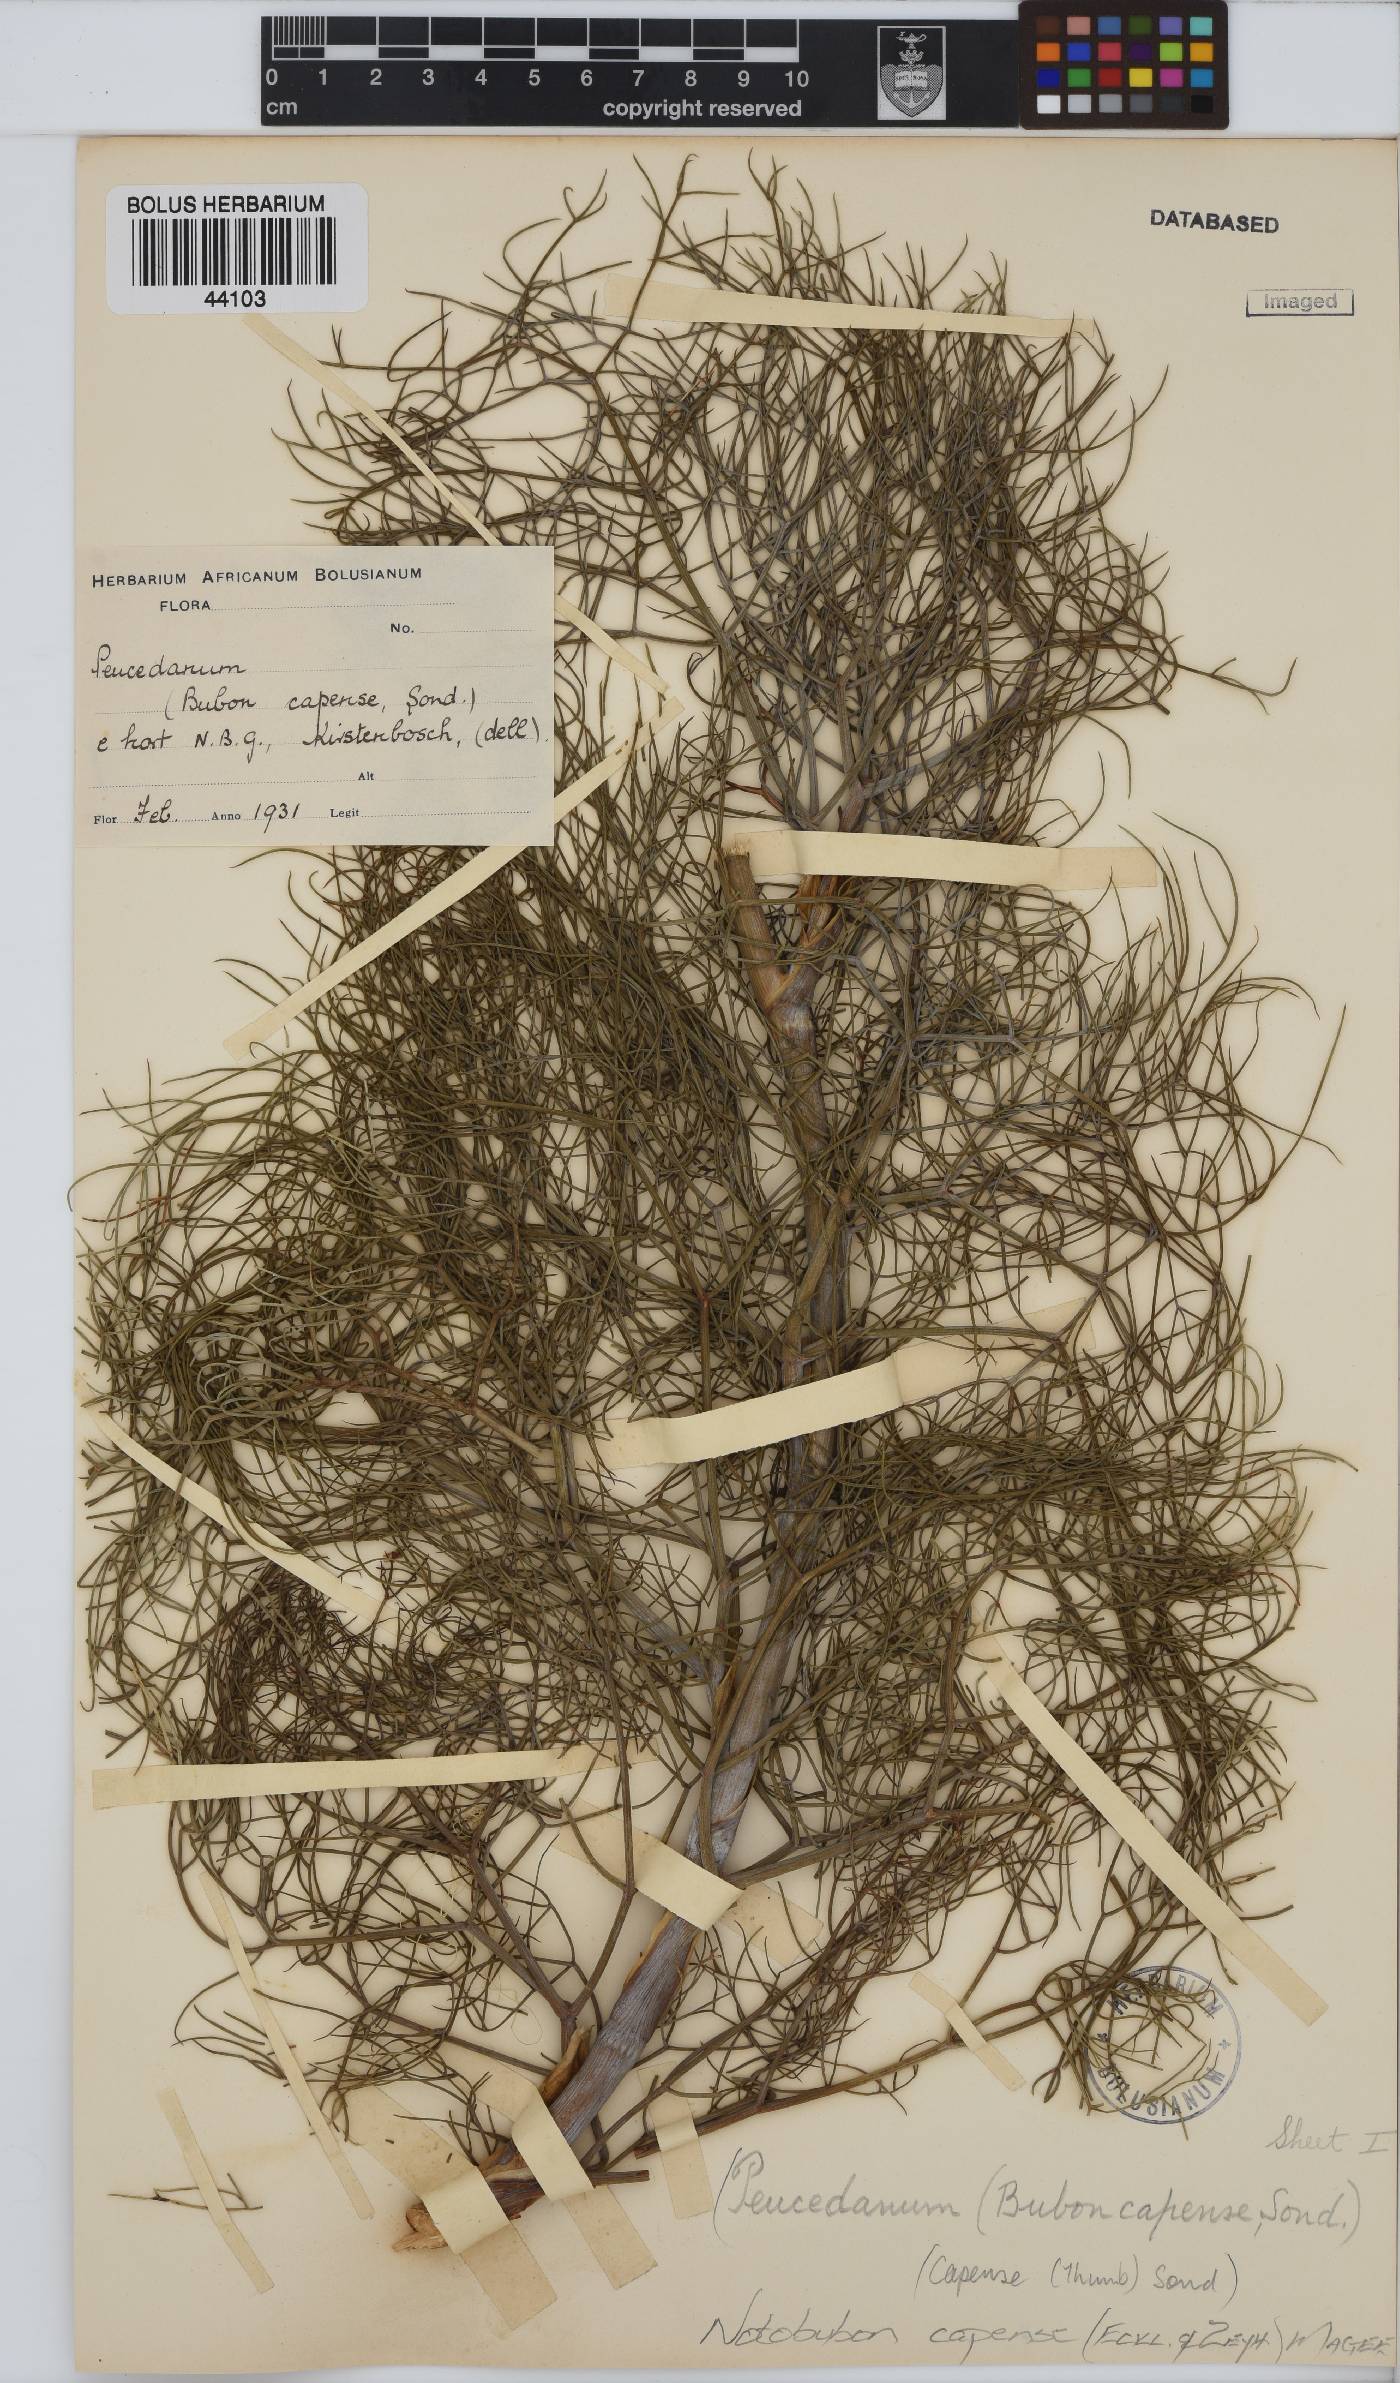 0 1 2 3 4 5 6 7 8 9 10
cm copyright reserved
BOLUS HERBARIUM
44103
DATABASED
Imaged
HERBARIUM AFRICANUM BOLUSIANUM
FLORA
No.
Peucedanum
(Bubon capense, Sond.)
e hort N.B.G., Kirstenbosch, (dell).
Alt
Flor. Feb. Anno 1931 Legit
HERBARIUM
* BOLUSIANUM *
Sheet I
(Peucedanum (Bubon capense, Sond.)
(Capense (Thunb) Sond)
Notobubon capense (ECKL. & ZEYH.) MAGEE